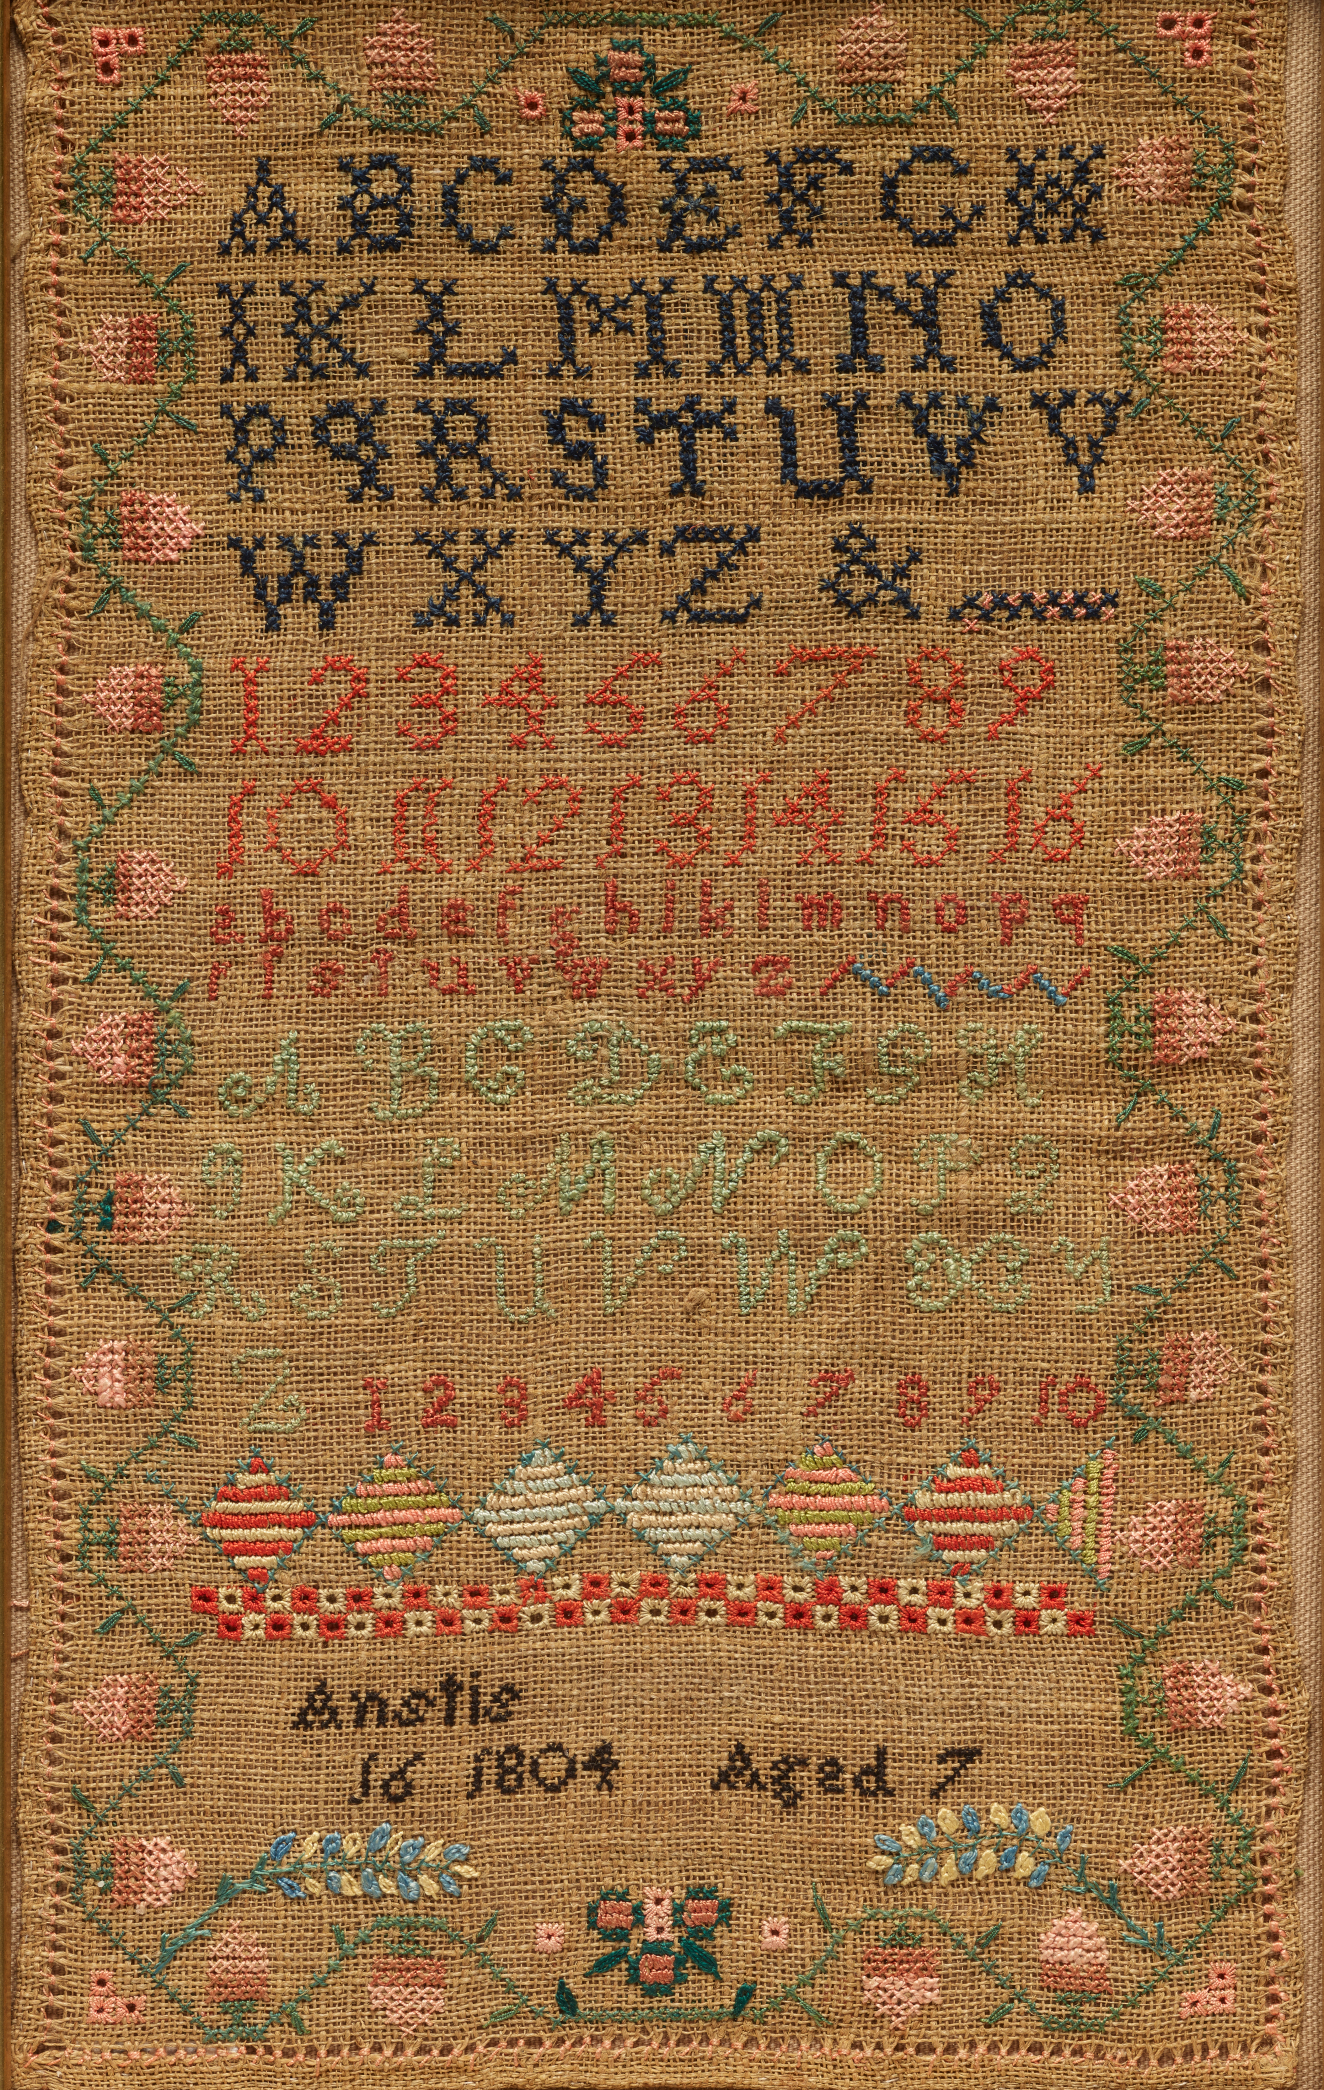 A B C D E F G H
I K L M M N O
P Q R S T U V V
W X Y Z &
1 2 3 4 5 6 7 8 9
10 11 12 13 14 15 16
a b c d e f g h i k l m n o p q
r ſ s t u v w x y z
A B C D E F G H
I K L M N O P Q
R S T U V W X Y
Z 1 2 3 4 5 6 7 8 9 10
Anstie
16 1804 Aged 7